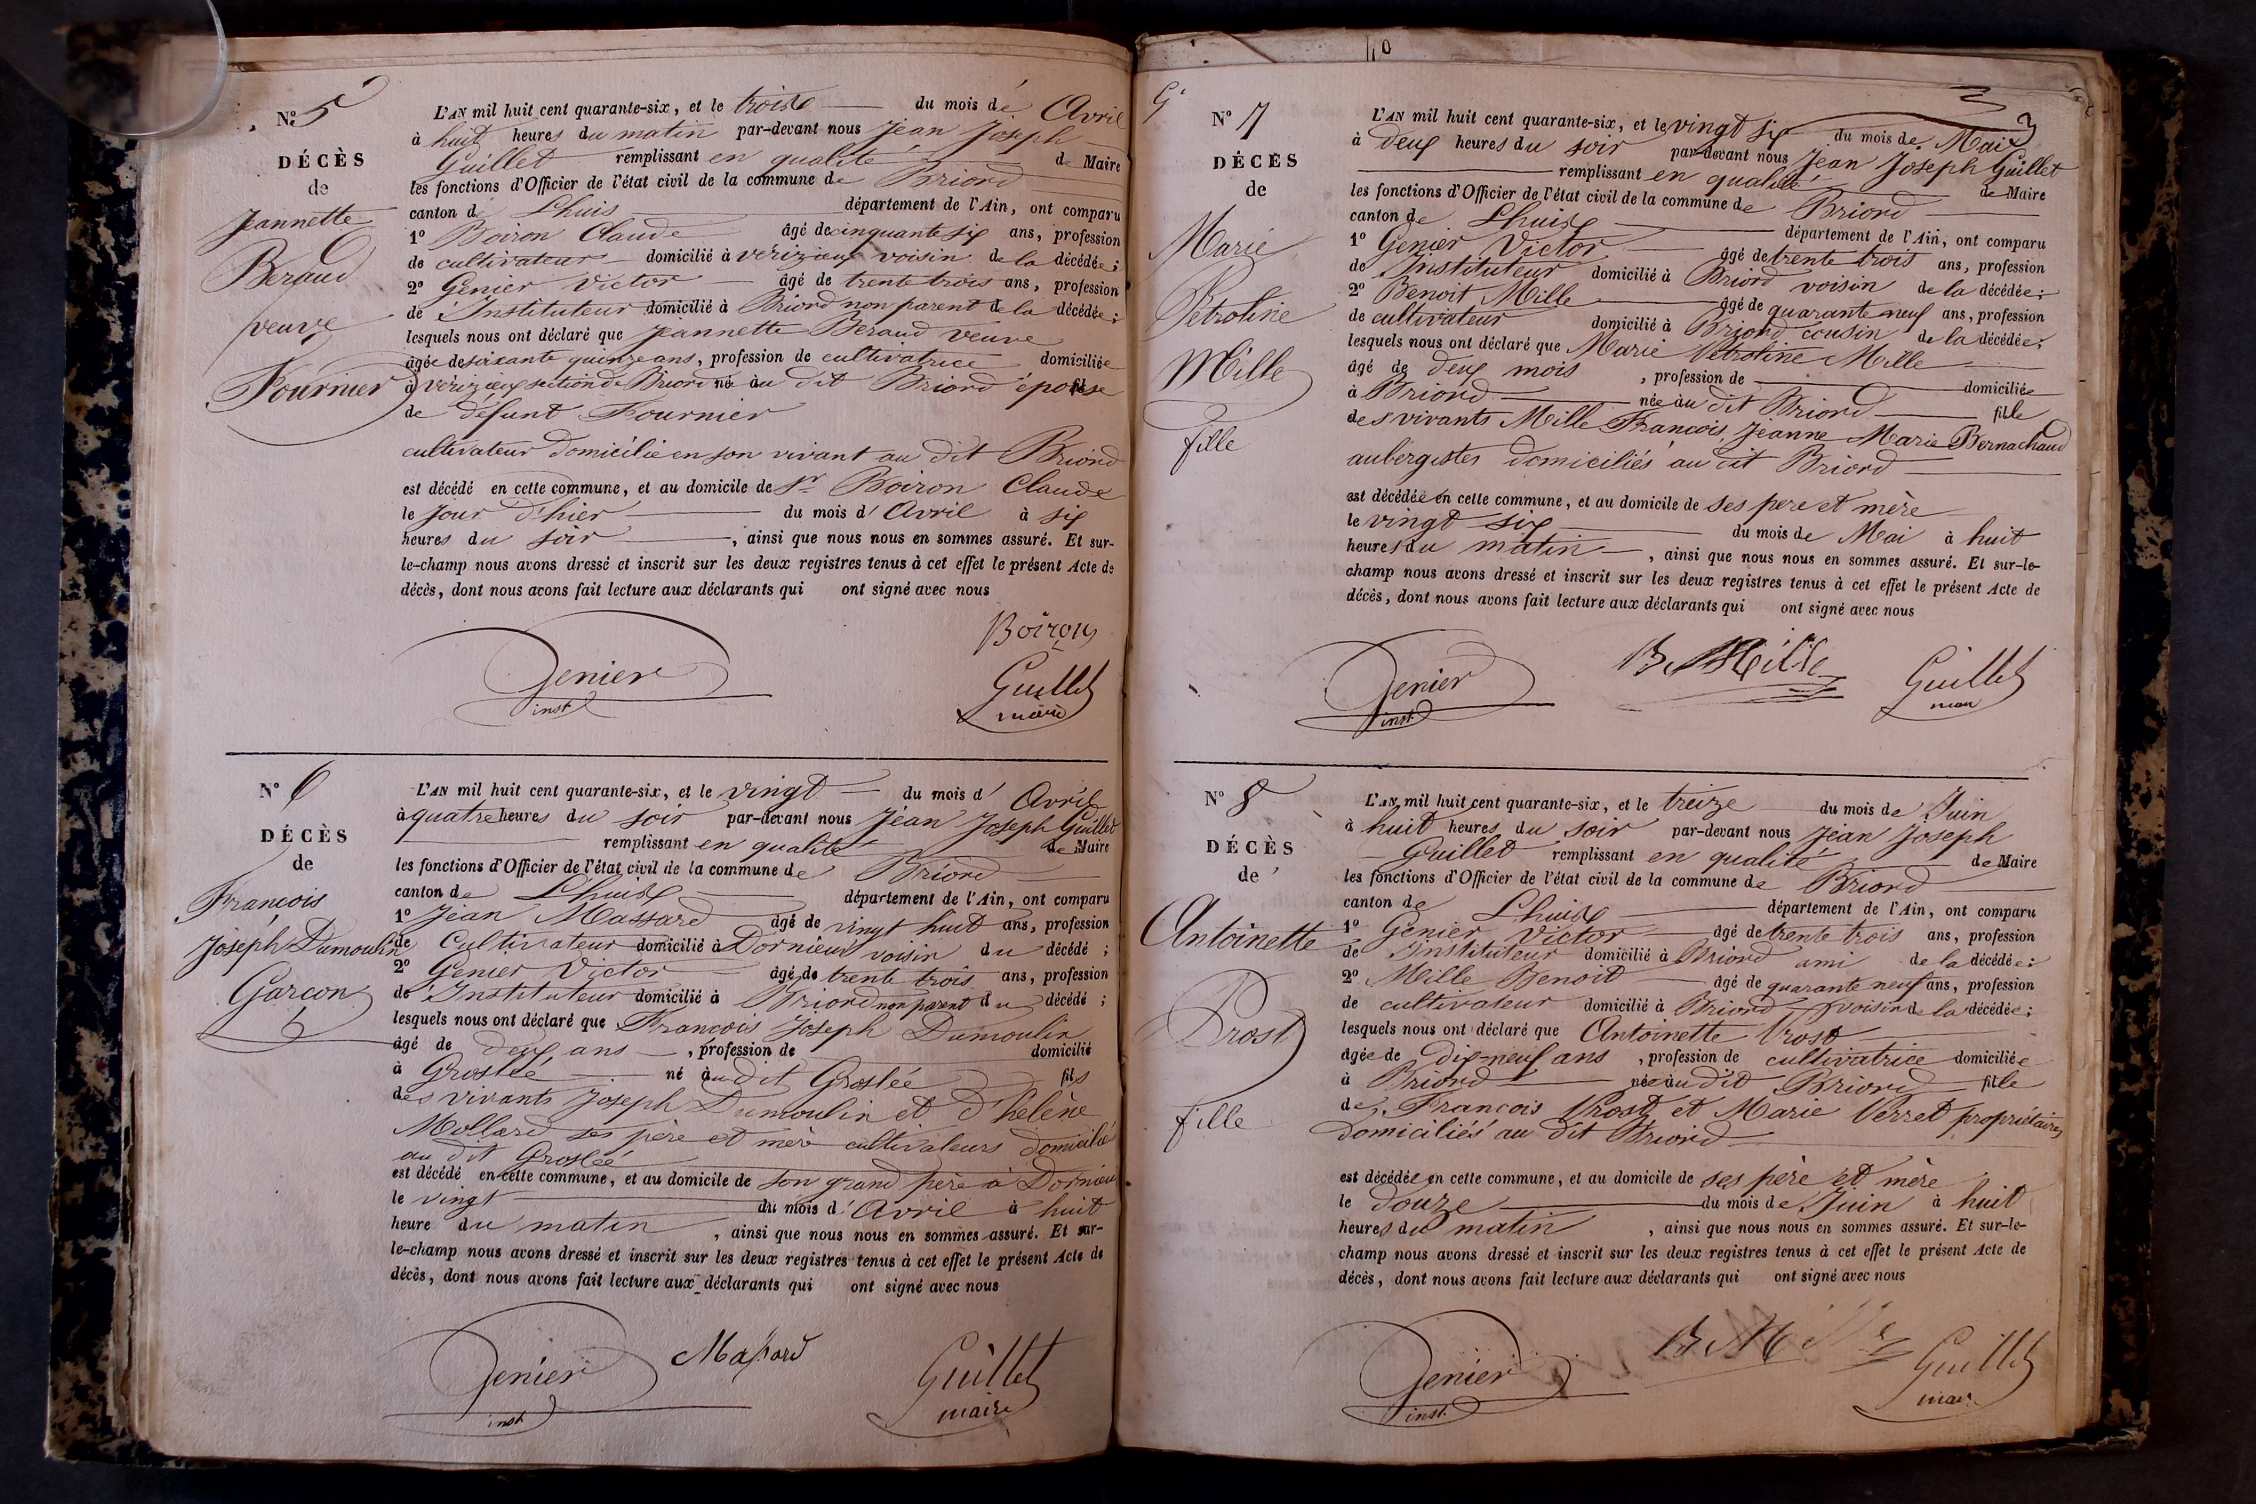 N° 5
DÉCÈS
de
Jeannette
Beraud
veuve
Fournier
L'AN mil huit cent quarante-six, et le trois du mois de Avril
à huit heures du matin par-devant nous Jean Joseph
Guillet remplissant en qualité de Maire
les fonctions d'Officier de l'état civil de la commune de Briord
canton de Lhuis département de l'Ain, ont comparu
1° Boiron Claude âgé de cinquante six ans, profession
de cultivateur domicilié à vérizieux voisin de la décédée;
2° Genier Victor âgé de trente trois ans, profession
de Instituteur domicilié à Briord non parent de la décédée;
lesquels nous ont déclaré que Jeannette Beraud veuve
âgée de soixante quinze ans, profession de cultivatrice domiciliée
à vérizieux section de Briord né au dit Briord épouse
de défunt Fournier
cultivateur domicilié en son vivant au dit Briord
est décédé en cette commune, et au domicile de Sr Boiron Claude
le jour d'hier du mois d'Avril à six
heures du soir, ainsi que nous nous en sommes assuré. Et sur-
le-champ nous avons dressé et inscrit sur les deux registres tenus à cet effet le présent Acte de
décès, dont nous avons fait lecture aux déclarants qui ont signé avec nous
Boiron
Genier
inst
Guillet
maire
N° 6
DÉCÈS
de
François
Joseph Dumoulin
Garçon
L'AN mil huit cent quarante-six, et le vingt du mois d' Avril
à quatre heures du soir par-devant nous Jean Joseph Guillet
remplissant en qualité de Maire
les fonctions d'Officier de l'état civil de la commune de Briord
canton de Lhuis département de l'Ain, ont comparu
1° Jean Massard âgé de vingt huit ans, profession
de Cultivateur domicilié à Dornieux voisin du décédé;
2° Genier Victor âgé de trente trois ans, profession
de Instituteur domicilié à Briord non parent du décédé;
lesquels nous ont déclaré que François Joseph Dumoulin
âgé de deux ans, profession de domicilié
à Groslée né au dit Groslée fils
des vivants Joseph Dumoulin et d'hélène
Mollard ses père et mère cultivateurs domicilié
au dit Groslée
est décédé en cette commune, et au domicile de son grand père à Dornieu
le vingt du mois d'Avril à huit
heure du matin, ainsi que nous nous en sommes assuré. Et sur-
le-champ nous avons dressé et inscrit sur les deux registres tenus à cet effet le présent Acte de
décès, dont nous avons fait lecture aux déclarants qui ont signé avec nous
Genier
inst
Massard
Guillet
maire
N° 7
DÉCÈS
de
Marie
Petroline
Mille
fille
L'AN mil huit cent quarante-six, et le vingt six du mois de Mai
à deux heures du soir par-devant nous Jean Joseph Guillet
remplissant en qualité de Maire
les fonctions d'Officier de l'état civil de la commune de Briord
canton de Lhuis département de l'Ain, ont comparu
1° Genier Victor âgé de trente trois ans, profession
de Instituteur domicilié à Briord voisin de la décédée;
2° Benoit Mille âgé de quarante neuf ans, profession
de cultivateur domicilié à Briord cousin de la décédée;
lesquels nous ont déclaré que Marie Petroline Mille
âgé de deux mois, profession de domiciliée
à Briord née au dit Briord fille
des vivants Mille François, Jeanne Marie Bernachaud
aubergistes domiciliés au dit Briord
est décédée en cette commune, et au domicile de ses pere et mère
le vingt six du mois de Mai à huit
heures du matin, ainsi que nous nous en sommes assuré. Et sur-le-
champ nous avons dressé et inscrit sur les deux registres tenus à cet effet le présent Acte de
décès, dont nous avons fait lecture aux déclarants qui ont signé avec nous
Genier
inst.
B. Mille
Guillet
N° 8
DÉCÈS
de
Antoinette
Prost
fille
L'AN mil huit cent quarante-six, et le treize du mois de Juin
à huit heures du soir par-devant nous Jean Joseph
Guillet remplissant en qualité de Maire
les fonctions d'Officier de l'état civil de la commune de Briord
canton de Lhuis département de l'Ain, ont comparu
1° Genier Victor âgé de trente trois ans, profession
de Instituteur domicilié à Briord ami de la décédée;
2° Mille Benoit âgé de quarante neuf ans, profession
de cultivateur domicilié à Briord voisin de la décédée;
lesquels nous ont déclaré que Antoinette Prost
âgée de dix-neuf ans, profession de cultivatrice domiciliée
à Briord née au dit Briord fille
de François Prost et Marie Verret propriétaires
domiciliés au dit Briord
est décédée en cette commune, et au domicile de ses père et mère
le douze du mois de Juin à huit
heures du matin, ainsi que nous nous en sommes assuré. Et sur-le-
champ nous avons dressé et inscrit sur les deux registres tenus à cet effet le présent Acte de
décès, dont nous avons fait lecture aux déclarants qui ont signé avec nous
Genier
inst.
B. Mille
Guillet